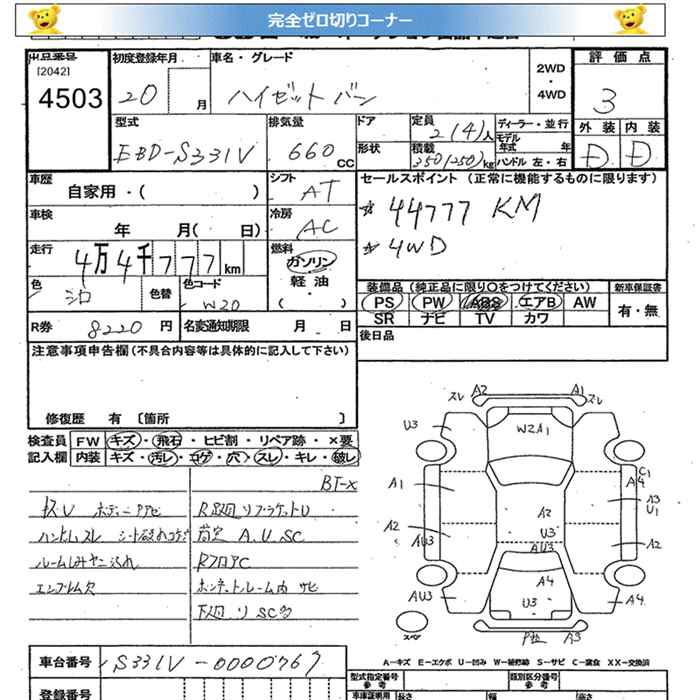 完全ゼロ切りコーナー
出品番号
[2042]
4503
初度登録年月
20 月
車名・グレード
ハイゼットバン
2WD
・
4WD
評価点
3
外装 内装
D D
型式
EBD-S331V
排気量
660 CC
ドア
形状
定員
2(4)人
積載
350(250)kg
ディーラー・並行
モデル年式 年
ハンドル 左・右
車歴
自家用・( )
シフト
AT
車検
年 月( 日)
冷房
AC
走行
4万4千777km
燃料
ガソリン
軽油
( )
セールスポイント (正常に機能するものに限ります)
☆ 44777 KM
☆ 4WD
色
シロ
色替
色コード
W20
装備品 (純正品に限り〇をつけてください)
PS PW ABS エアB AW
SR ナビ TV カワ
新車保証書
有・無
R券 8220 円
名変通知期限 月 日
後日品
注意事項申告欄 (不具合内容等は具体的に記入して下さい)
修復歴 有 〔箇所 〕
検査員記入欄
FW キズ・飛石・ヒビ割・リペア跡・×要
内装 キズ・汚レ・コゲ・穴・スレ・キレ・破レ
BT-X
ハンドルスレ シート破れコゲ
ルームしみヤニ汚れ
エンブレム欠
A.U.SC
RフロアC
ボンネットルーム内 サビ
スレ A2 A1 スレ
U3
W2A1
A1
C1
A4
A3
U1
A2
A2
U3
AU3
AU3
A2
A4
U3
AU3
A4
スペア
A3
A-キズ E-エクボ U-凹み W-補修跡 S-サビ C-腐食 XX-交換済
車台番号
S331V-0000767
型式指定番号
参考
類別区分番号
参考
登録番号
車庫証明用 長さ 幅 高さ